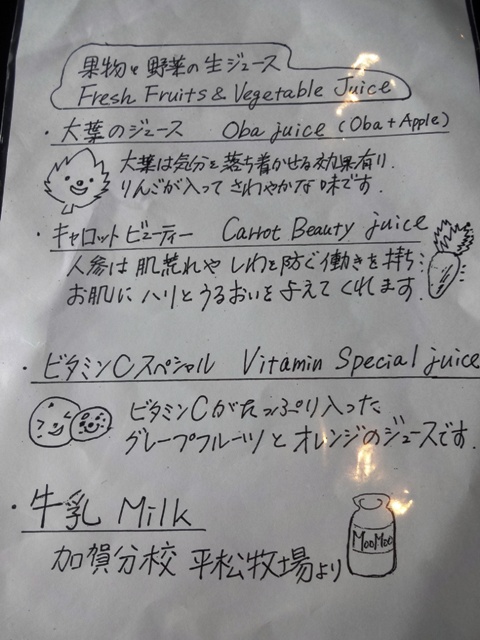 果物と野菜の生ジュース
Fresh Fruits & Vegetable Juice
・大葉のジュース Oba juice (Oba + Apple)
大葉は気分を落ち着かせる効果有り.
りんごが入って さわやかな味です.
・キャロットビューティー Carrot Beauty juice
人参は肌荒れや しわを防ぐ働きを持ち:
お肌に ハリとうるおいを与えてくれます.
・ビタミンCスペシャル Vitamin Special juice
ビタミンCがたっぷり入った
グレープフルーツとオレンジのジュースです.
・牛乳 Milk
MooMoo
加賀分校 平松牧場より